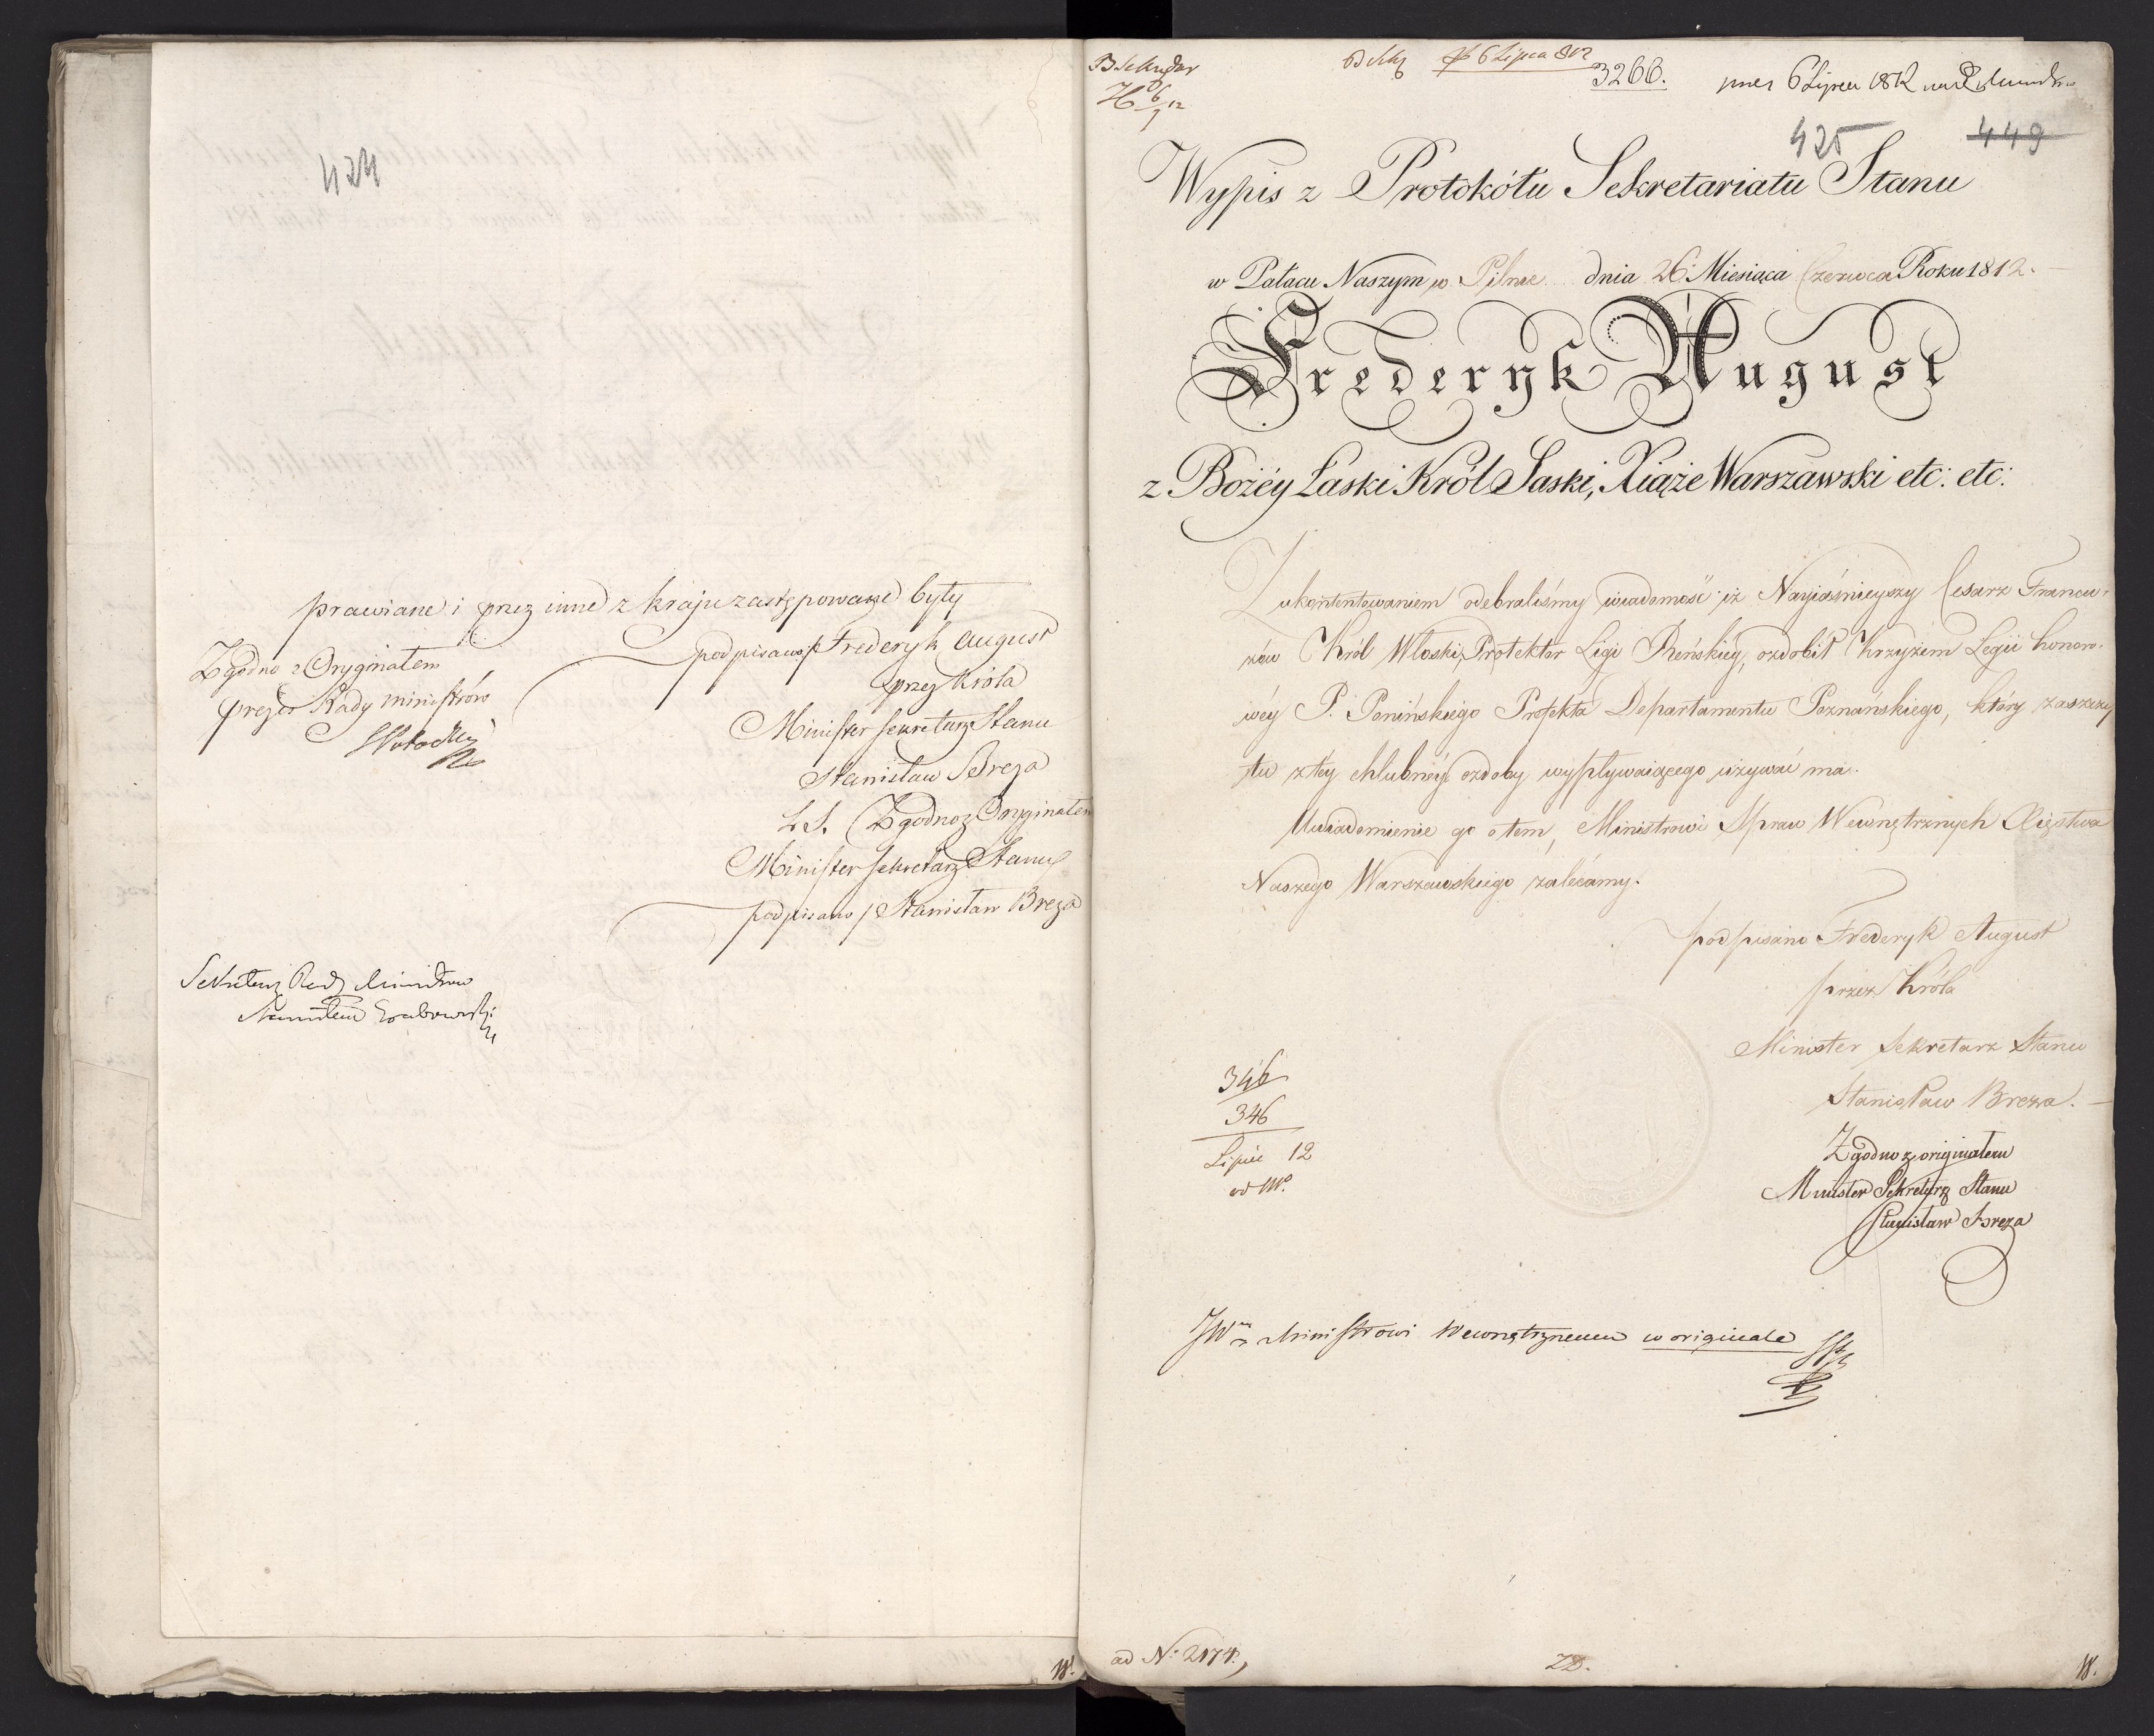 424
prawiane i przez inne z kraju zastępowane były
Zgodno z Oryginałem
prezes Rady ministrów
podpisano / Frederyk August
przez Króla
Minister Sekretarz Stanu
Stanisław Breza
L. S. Zgodno z Oryginałem
Minister Sekretarz Stanu
podpisano / Stanisław Breza
Sekretarz Rady Ministrów
Stanisław Grabowski
W.
6 Lipca 812
3266.
6 Lipca 1812
425
449
Wypis z Protokółu Sekretariatu Stanu
w Pałacu Naszym w Pilnic dnia 26 Miesiąca Czerwca Roku 1812.
Frederyk August
z Bożéy Łaski Król Saski, Xiąże Warszawski etc: etc:
Z ukontentowaniem odebraliśmy wiadomość iż Nayiaśnieyszy Cesarz Francu-
zów Król Włoski, Protektor Ligi Reńskiey, ozdobił Krzyżem Legii honoro-
wéy P. Ponińskiego Prefekta Departamentu Poznańskiego, który zaszczy
tu z téy chlubnéy ozdoby wypływaiącego używać ma.
Uwiadomienie go o tem, Ministrowi Spraw Wewnętrznych Xięstwa
Naszego Warszawskiego zalecamy.
podpisano Frederyk August
przez Króla
Minister Sekretarz Stanu
Stanisław Breza.
Zgodno z originałem
Minister Sekretarz Stanu
Stanisław Breza
346
346
Lipiec 12
JW Ministrowi Wewnętrznemu w originale
ad N: 2174.
22.
W.